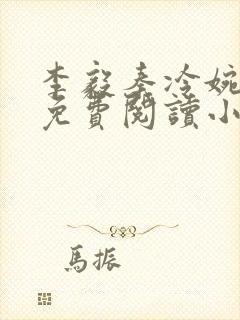 李毅秦冷婉
免費閱讀小
馬振